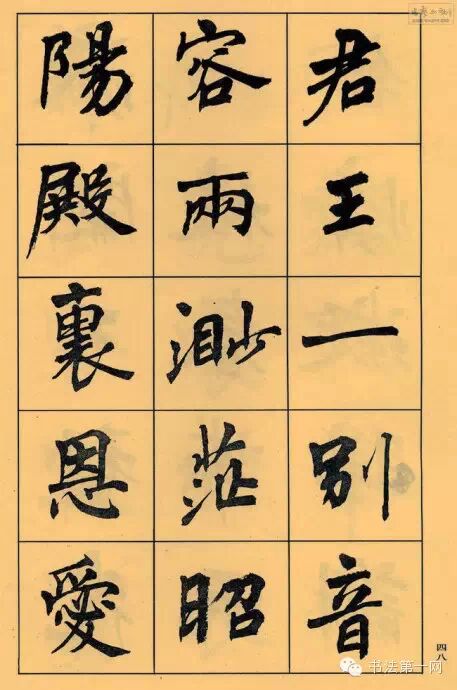 君王一别音
容兩渺茫昭
陽殿裏恩愛
四八
书法第十网